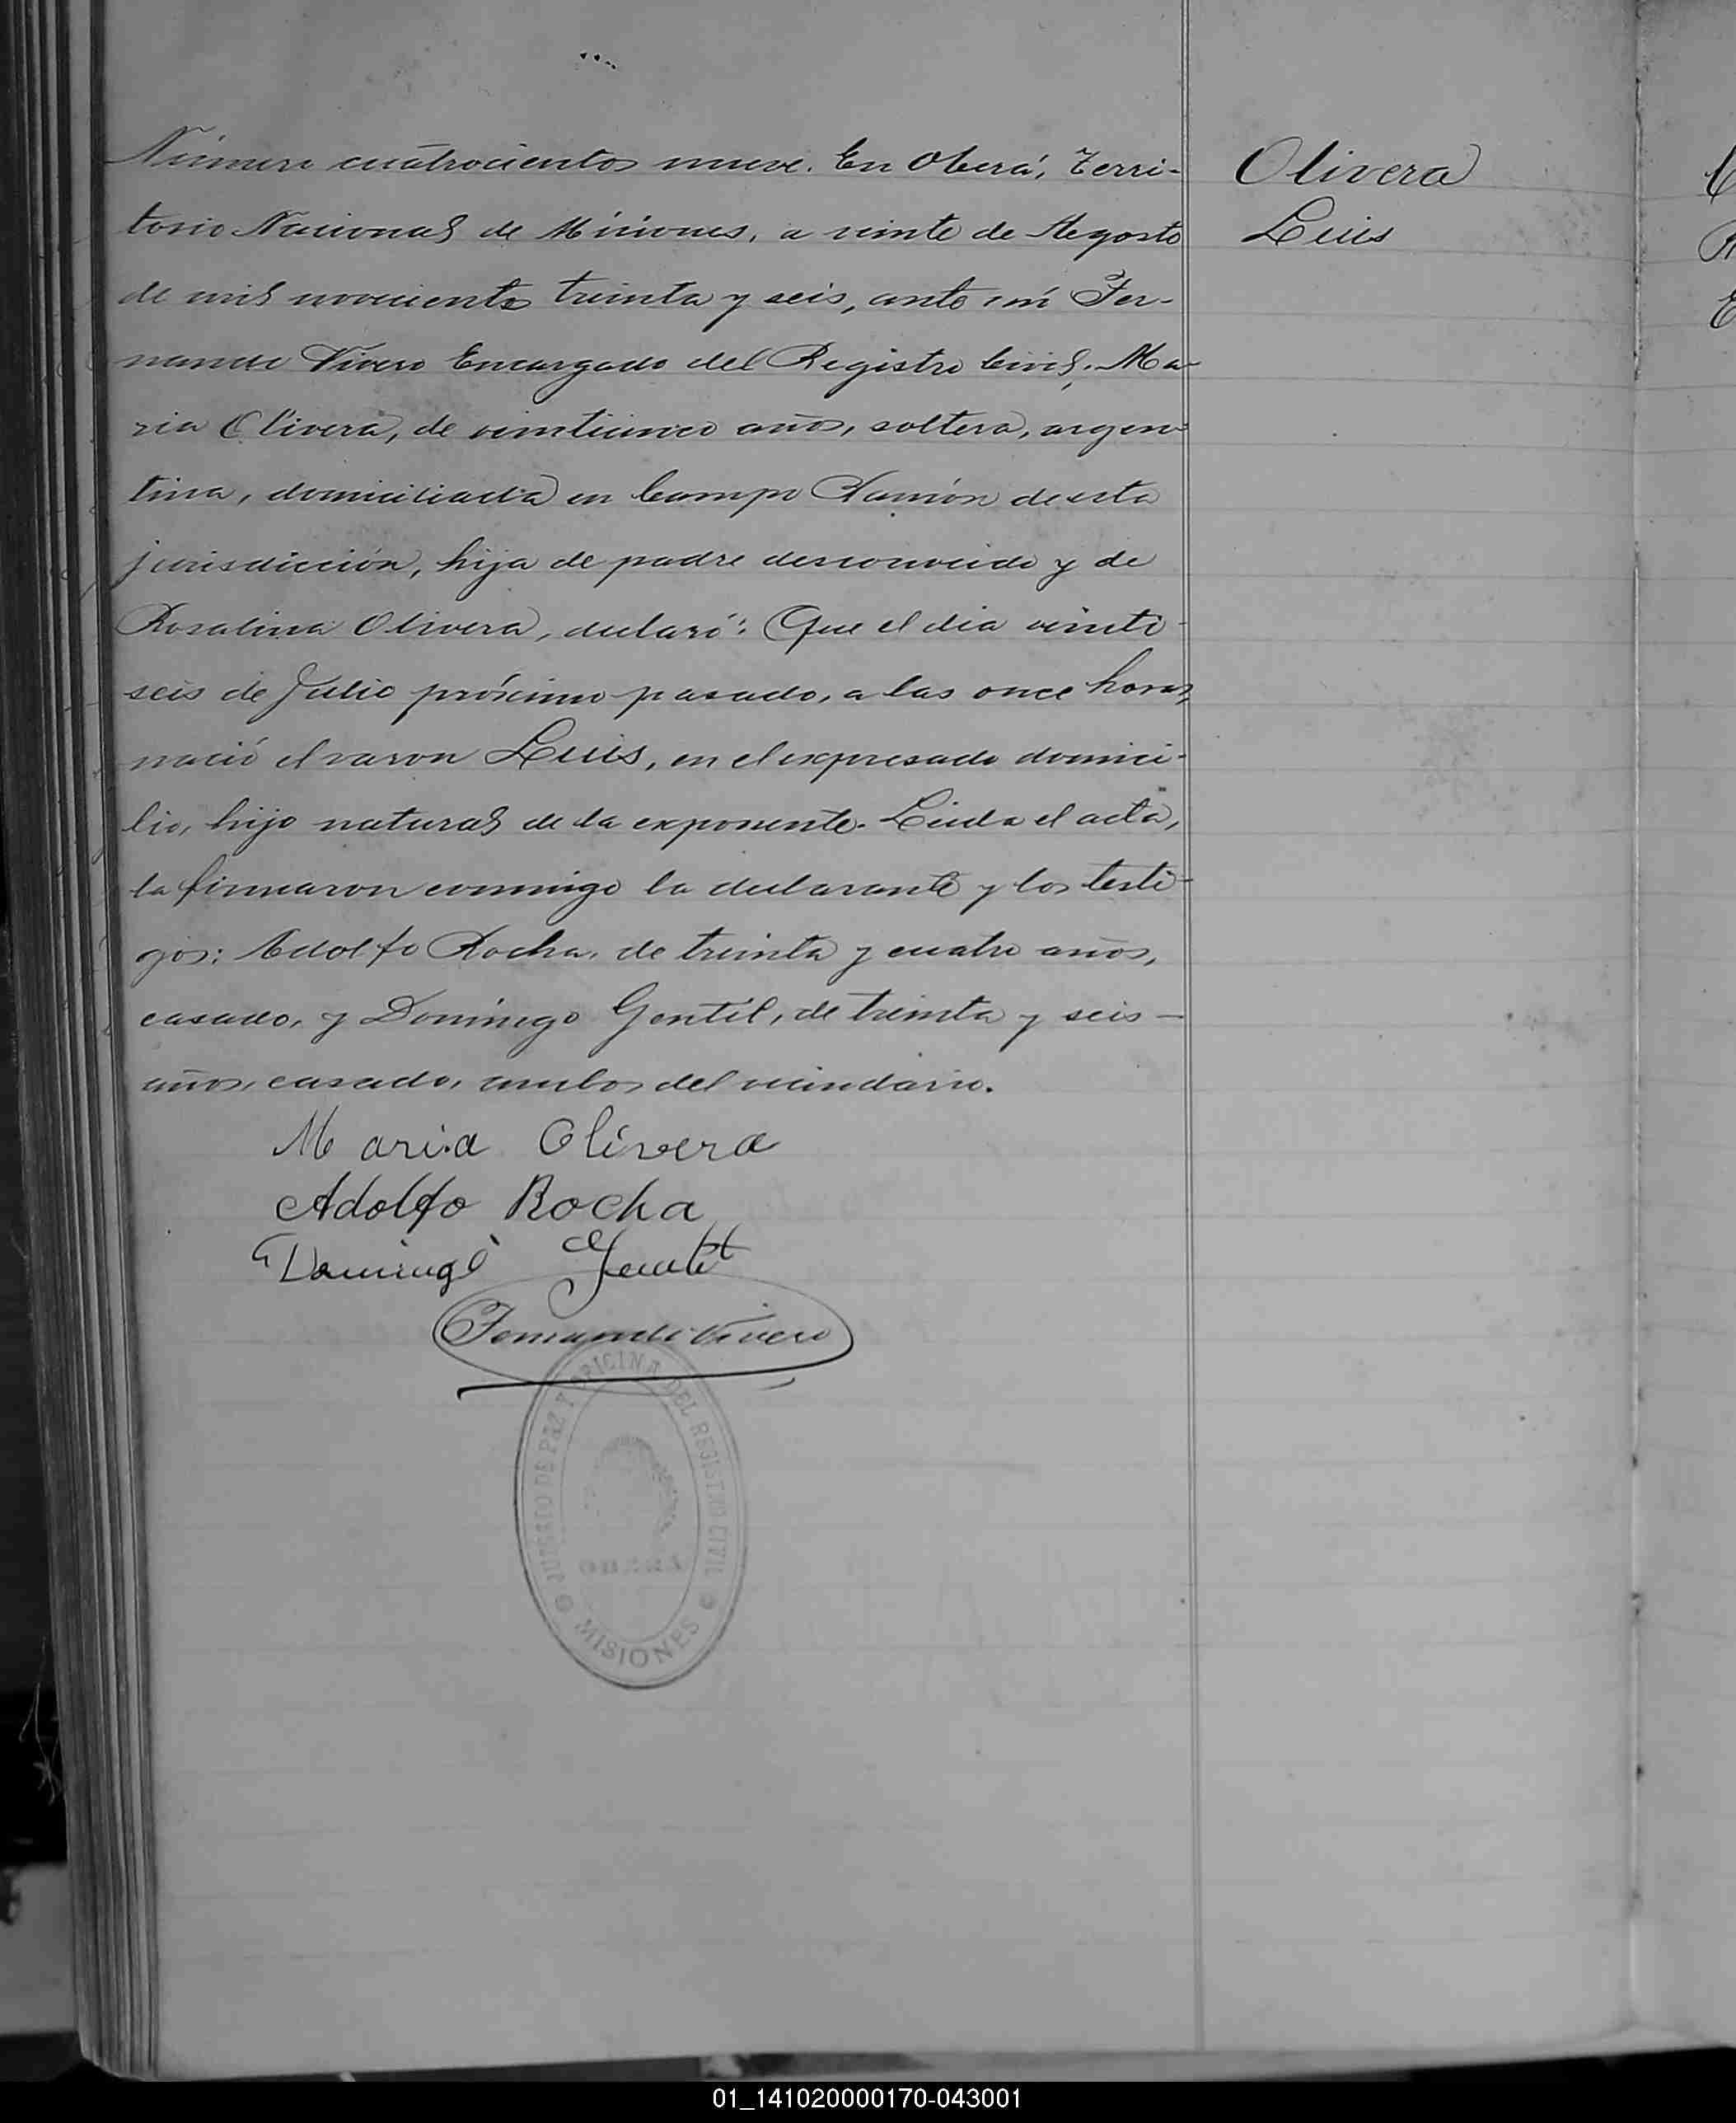 Número cuatrocientos nueve. En Oberá, Terri-
torio Nacional de Misiones, a veinte de Agosto
de mil novecientos treinta y seis, ante mí Fer-
nando Vivero Encargado del Registro Civil, Ma-
ria Olivera, de veinticinco años, soltera, argen-
tina, domiciliada en Campo Ramón de esta
jurisdicción, hija de padre desconocido y de
Rosalina Olivera, declaró: Que el dia veinti-
seis de Julio próximo pasado, a las once horas,
nació el varon Luis, en el expresado domici-
lio, hijo natural de la exponente. Leida el acta,
la firmaron conmigo la declarante y los testi-
gos: Adolfo Rocha, de treinta y cuatro años,
casado, y Domingo Gentil, de treinta y seis
años, casado, ambos del vecindario.
Maria Olivera
Adolfo Rocha
Domingo Gentil
Fernando Vivero
JUZGADO DE PAZ Y OFICINA DEL REGISTRO CIVIL
OBERÁ
MISIONES
Olivera
Luis
01_141020000170-043001